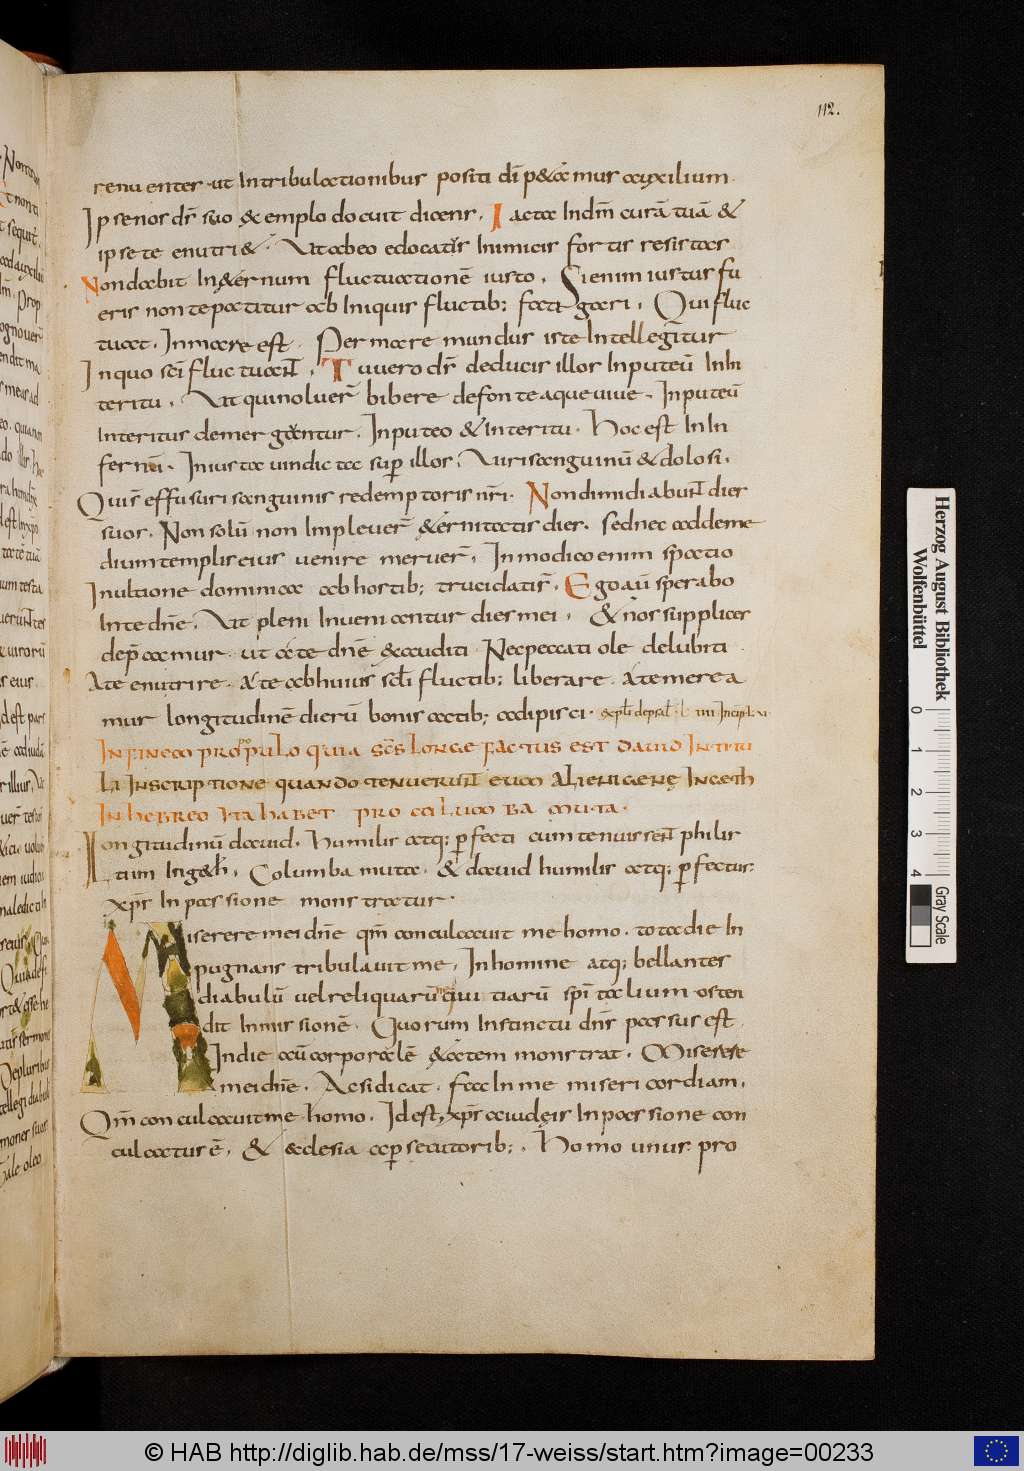 112.
renuenter ut In tribulationibus positi dī p&amus auxilium.
Ipse nos dr̄ suo &emplo docuit dicens. Iacta In dnm̄ curā tuā &
ipse te enutri&. Ut abeo edocatr̄ Inimicis fortis resistas
Non dabit In&ernum fluctuationē iusto. Si enim iustus fu
eris non te patitur ab Iniquis fluctib; fatigari. Qui fluc
tuat. In mare est. Per mare mundus iste Intelleg̃itur
In quo sc̄i fluctuant. Tu uero dr̄ deducis illos In puteū In In
teritu. Ut qui noluer̄ bibere de fonte aque uiue. In puteū
Interitus demergantur. In puteo & interitu. Hoc est In In
fernū. In iusta uindicta sup illos. Uiri sanguinū & dolosi.
Quis effusuri sanguinis redemptoris nr̄i. Non dimidiabunt dies
suos. Non solū non Impleuer̄ &ernitatis dies. sed nec ad deme
dium templis eius uenire meruer̄. In modico enim spatio
In ultione dominica ab hostib; trucidatis̄. Ego aū sperabo
In te dn̄e. Ut pleni Inueniantur dies mei. & nos supplices
dep̄camur. ut a te dn̄e &auditi. Nec peccati ole delubiti
A te enutrire. A te ab huius scl̄i fluctib; liberare. A te merea
mur longitudinē dierū bonis actib; adipisci.
IN FINEM PRO POPULO QUIA SC̄S LONGE FACTUS EST DAUID IN TITU
LI INSCRIPTIONE QUANDO TENUERUNT EUM ALIENIGENĘ IN GETH
IN HEBREO ITA HABET PRO COLUMBA MUTA.
Longitudinū dauid. Humilis atq; pfecti cum tenuissent philis
tiim In geth. Columba muta. & dauid humilis atq; pfectus.
xp̄s In passione monstratur.
Miserere mei dn̄e qm̄ conculcauit me homo. tota die In
pugnans tribulauit me. In homine atq; bellantes
diabulū uel reliquarū qui tiarū spi taliū osten
dit In missionē. Quorum Instinctu dn̄s passus est
In die aū corporalē &atem monstrat. Miserere
mei dn̄e. Ac si dicat. fac In me misericordiam.
Qm̄ conculcauit me homo. Id est, xp̄s a iudęis In passione con
culcatur ē. & aeclesia a psecutorib;. Homo unus. pro
Herzog August Bibliothek
Wolfenbüttel
0 1 2 3 4
Gray Scale
© HAB http://diglib.hab.de/mss/17-weiss/start.htm?image=00233